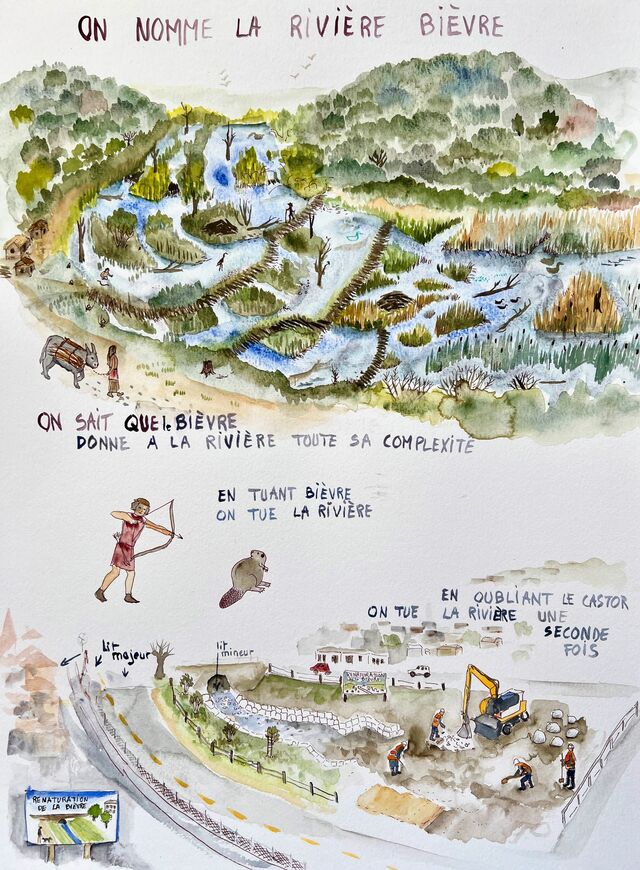 ON NOMME LA RIVIÈRE BIÈVRE
ON SAIT QUE le BIÈVRE
DONNE A LA RIVIÈRE TOUTE SA COMPLEXITÉ
EN TUANT BIÈVRE
ON TUE LA RIVIÈRE
EN OUBLIANT LE CASTOR
ON TUE LA RIVIÈRE UNE
SECONDE
FOIS
Lit
majeur
lit
mineur
RENATURATION
BIÈVRE
RENATURATION
DE LA BIÈVRE